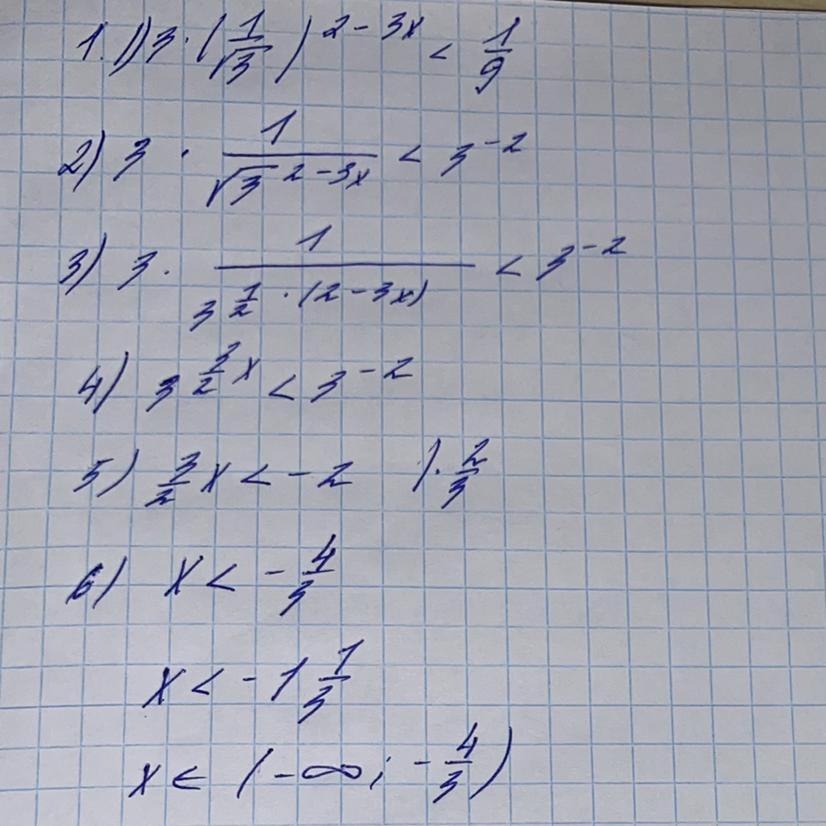 1. 1) 3 · (1/√3)^(2 - 3x) < 1/9
2) 3 · 1/√3^(2 - 3x) < 3^(-2)
3) 3 · 1/3^(1/2 · (2 - 3x)) < 3^(-2)
4) 3^(3/2 x) < 3^(-2)
5) 3/2 x < -2 | · 2/3
6) x < - 4/3
x < -1 1/3
x ∈ (-∞; - 4/3)